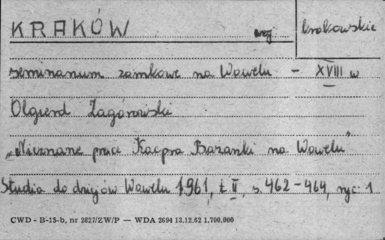 KRAKÓW woj krakowskie
seminarium zamkowe na Wawelu – XVIII w
Olgierd Zagórowski
„Nieznane prace Kacpra Bażanki na Wawelu"
Studia do dziejów Wawelu 1961, t. II, s. 462-464, ryc. 1
CWD - B-15-b, nr 2827/ZW/P — WDA 2694 13.12.62 1.700.000